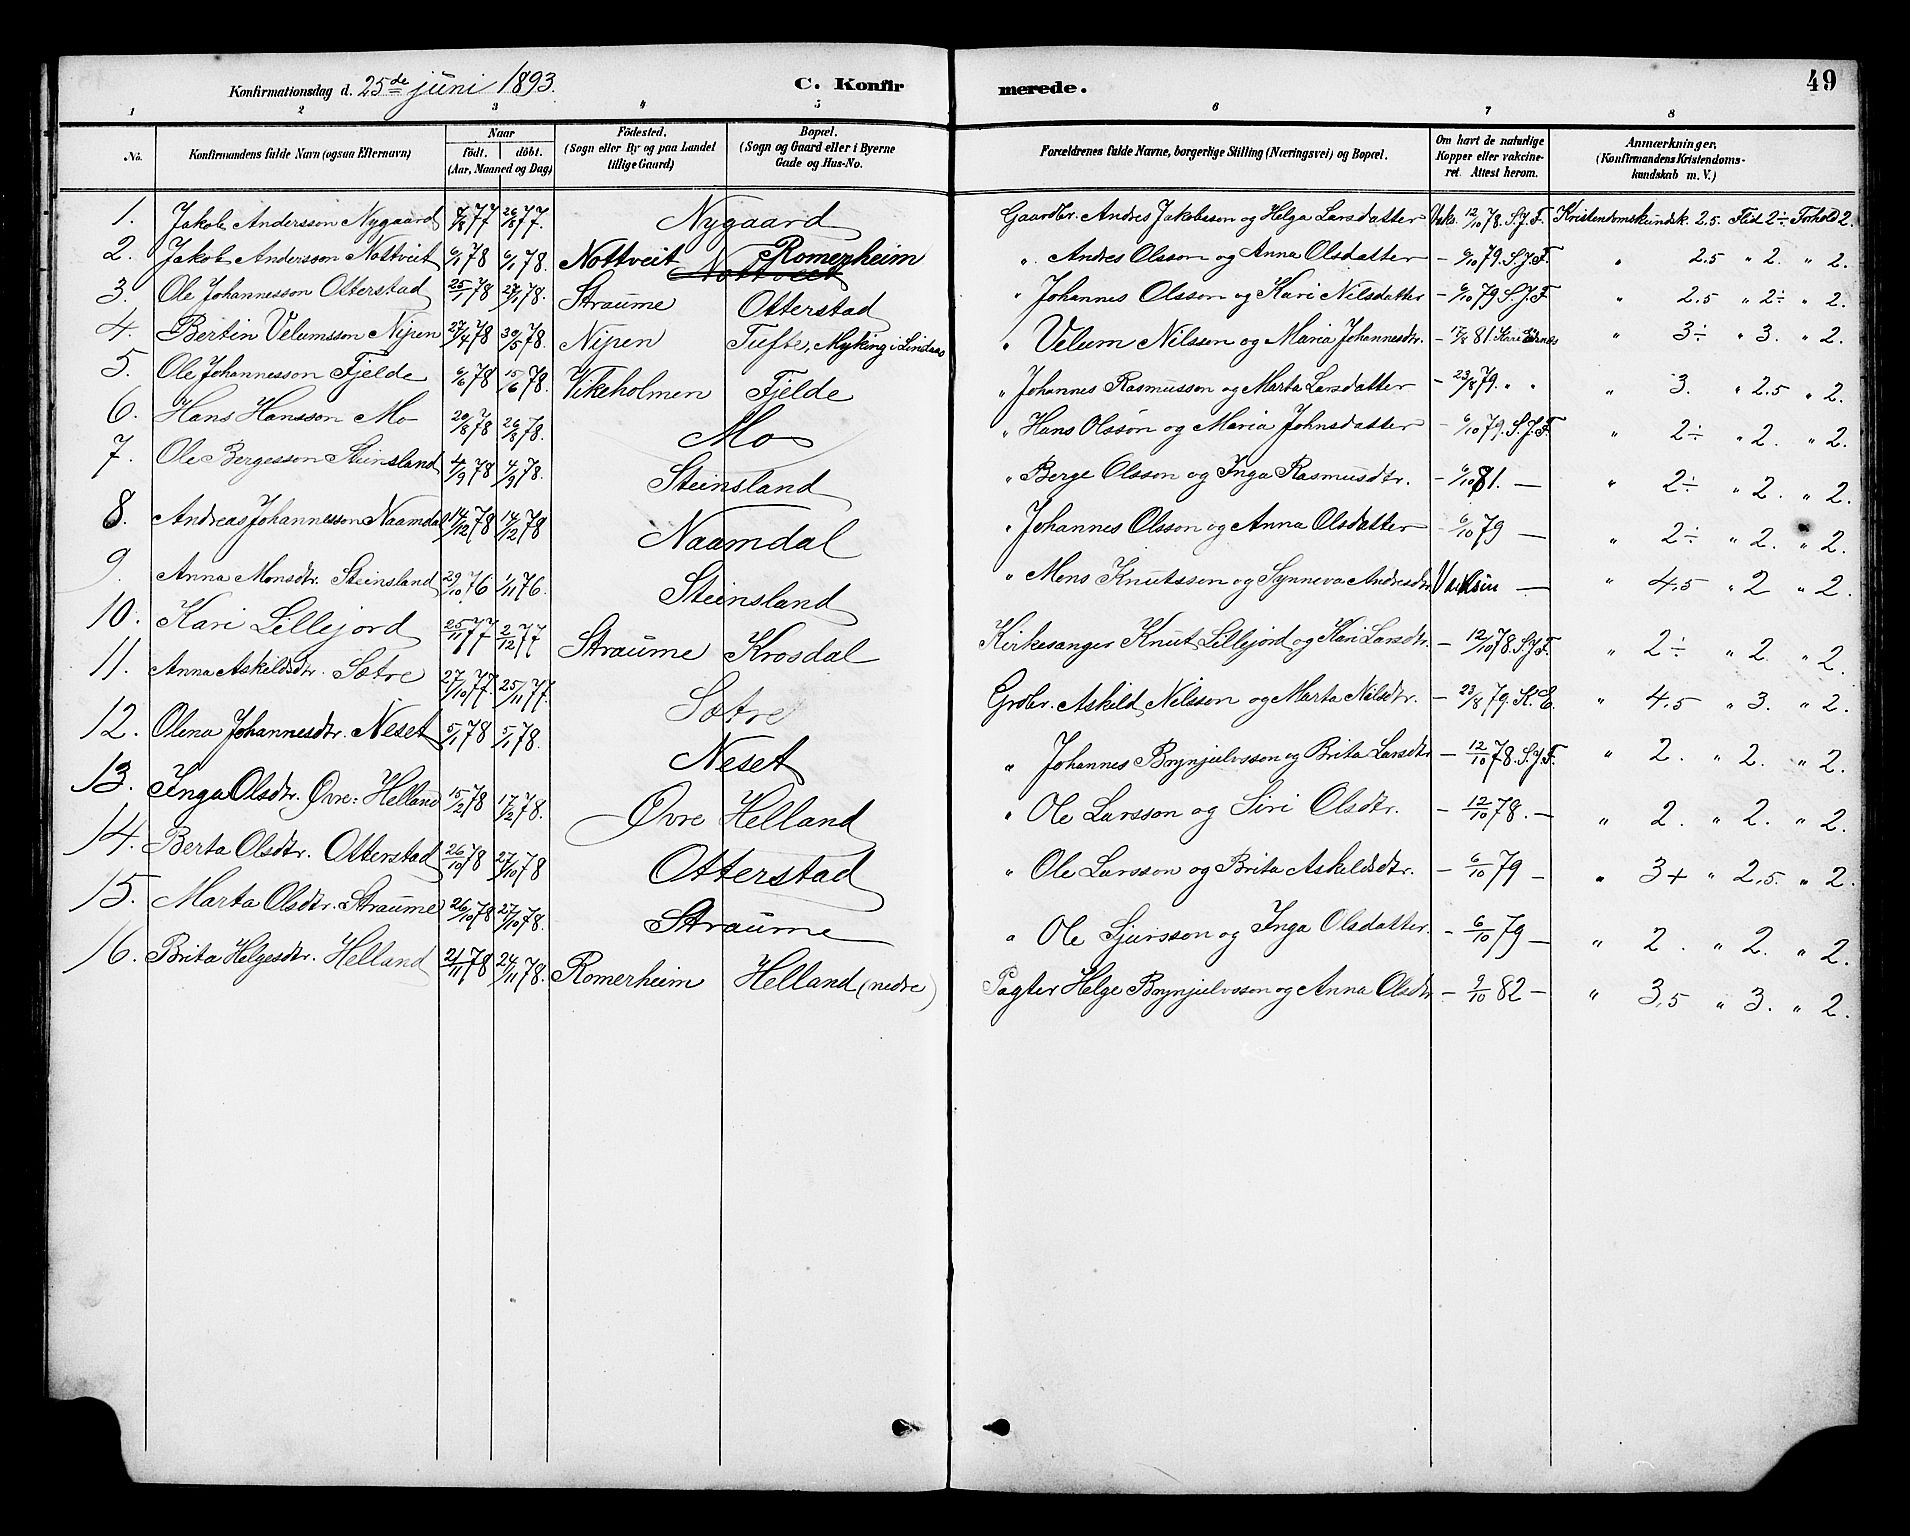 Konfirmationsdag d. 25de juni 1893. C. Konfirmerede. 49
1 2 3 4 5 6 7 8
No. Konfirmandens fulde Navn (ogsaa Efternavn) Naar født. døbt. (Aar, Maaned og Dag) Fødested. (Sogn eller By og paa Landet tillige Gaard) Bopæl. (Sogn og Gaard eller i Byerne Gade og Hus-No. Forældrenes fulde Navne, borgerlige Stilling (Næringsvei) og Bopæl. Om havt de naturlige Kopper eller vakcineret. Attest herom. Anmærkninger, (Konfirmandens Kristendomskundskab m. V.)
1. Jakob Andersson Nygaard 7/8 77 26/8 77. Nygaard Gaardbr. Andres Jakobsson og Helga Larsdatter Vaks. 12/10 78. S.J.F. Kristendomskundsk. 2.5 Flid 2÷ Forhold 2.
2. Jakob Andersson Nottveit 6/1 78 6/1 78. Nottveit Romerheim Nottveit " Andres Olsson og Anna Olsdatter – 6/10 79. S.J.F. " 2.5 " 2. " 2.
3. Ole Johannesson Otterstad 25/1 78 27/1 78. Straume Otterstad " Johannes Olsson og Kari Nilsdatter – 6/10 79 S.J.F. " 2.5 " 2÷ " 2.
4. Bertin Velumsson Nipen 27/4 78 30/5 78. Nipen Tufte, Myking i Lindaas " Velum Nilsson og Maria Johannesdtr. – 17/8 81. Kari " 3÷ " 3. " 2.
5. Ole Johannesson Fjelde 6/6 78 15/6 78. Vikeholmen Fjelde " Johannes Rasmusson og Marta Larsdatter – 23/8 79. " " " 3. " 2.5 " 2.
6. Hans Hansson Mo 20/8 78 26/8 78. Mo " Hans Olsson og Maria Johnsdatter – 6/10 79. S.J.F. " 2÷ " 2. " 2.
7. Ole Bergesson Steinsland 4/9 78 4/9 78. Steinsland " Berge Olsson og Inga Rasmusdtr. – 6/10 81. — " 2÷ " 2. " 2.
8. Andreas Johannesson Naamdal 14/12 78 14/12 78 Naamdal " Johannes Olsson og Anna Olsdatter – 6/10 79 — " 2÷ " 2. " 2.
9. Anna Monsdtr. Steinsland 29/10 76 1/11 76. Steinsland " Mons Knutsson og Synneva Andresdtr. — " 4,5 " 2 " 2.
10. Kari Lillejord 25/11 77 2/12 77 Straume Krosdal Kirkesanger Knut Lillejord og Kari Larsdtr. – 12/10 78. S.J.F. " 2÷ " 2. " 2.
11. Anna Askildsdtr. Sætre 27/10 77. 25/11 77. Sætre Grdbr. Askild Nilsson og Marta Nilsdtr. – 23/8 79. K.E. " 4.5 " 3. " 2.
12. Olena Johannesdtr. Neset 5/1 78 5/1 78. Neset " Johannes Brynjulvsson og Brita Larsdtr. – 12/10 78. S.J.F. " 2. " 2. " 2.
13. Inga Olsdtr. Øvre: Helland 15/2 78 17/2 78. Øvre Helland " Ole Larsson og Siri Olsdtr. – 12/10 78. – " 2. " 2. " 2.
14. Berta Olsdtr. Otterstad 26/10 78 27/10 78 Otterstad " Ole Larsson og Brita Askeldsdtr. – 6/10 79 – " 3+ " 2,5. " 2.
15. Marta Olsdtr. Straume 26/10 78 27/10 78. Straume " Ole Sjursson og Inga Olsdatter. – 6/10 79 – " 2. " 2. " 2.
16. Brita Helgesdtr. Helland 21/11 78 24/11 78. Romerheim Helland (nedre) Pagter Helge Brynjulvsson og Anna Olsdtr. – 9/10 82 – " 3,5 " 3. " 2.